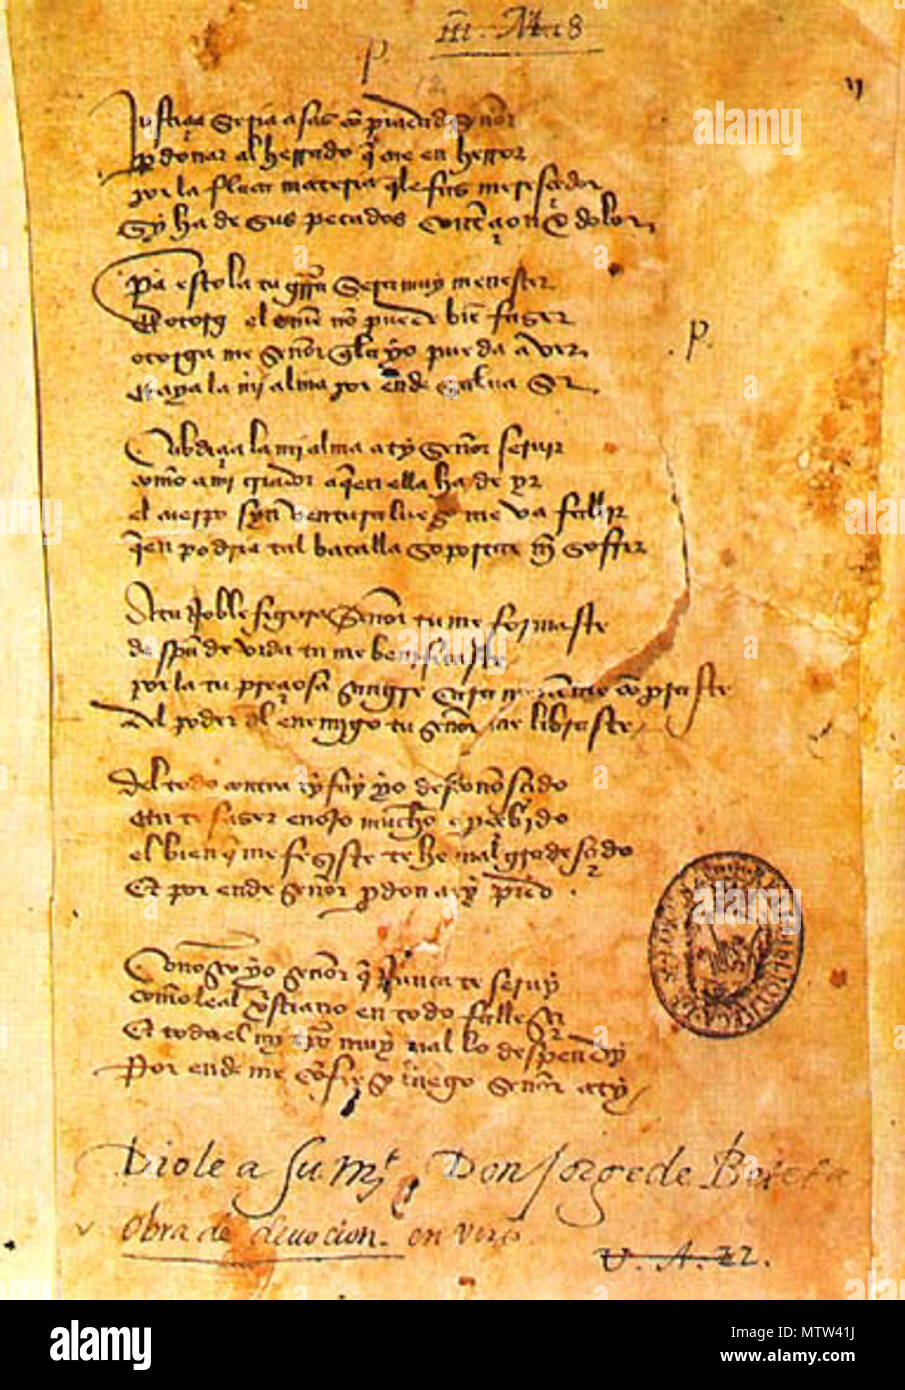 III. M. 18
P
VI
Justiçia seria asas con piadad señor
perdonar al herrado que cae en herror
por la flaca materia
sy ha de sus pecados contriçion e dolor
Para esto la tu graçia sería muy menester
el ome non puede bien fazer
otorga me señor que la yo pueda aver
e vaya la mi alma por ende salua ser
Cubdiçia la mi alma a ty señor seruir
como a mi criador a quien ella ha de yr
el cuerpo syn ventura luego me va fallir
quien podria tal batalla soportar nin soffrir
A tu noble figura señor tu me formaste
de spiritu de vida tu me
por la tu preçiosa sangre conpraste
del poder del enemigo tu señor me libraste
Del todo contra ty fuy yo desconosçido
en te fazer enojo mucho aperçebido
el bien que me feziste te he mal gradesçido
Et por ende señor perdon a ty pido
Conosco yo señor que nunca te seruy
como leal christiano en todo fallesçi
Et todo el my tienpo muy mal lo despendy
Por ende me confieso luego señor a ty
P.
Diole a Su Mt. Don Jorge de Beteta
Obra de deuocion en verso
V. A. 22.
BIBLIOTECA
alamy
Image ID: MTW41J
www.alamy.com